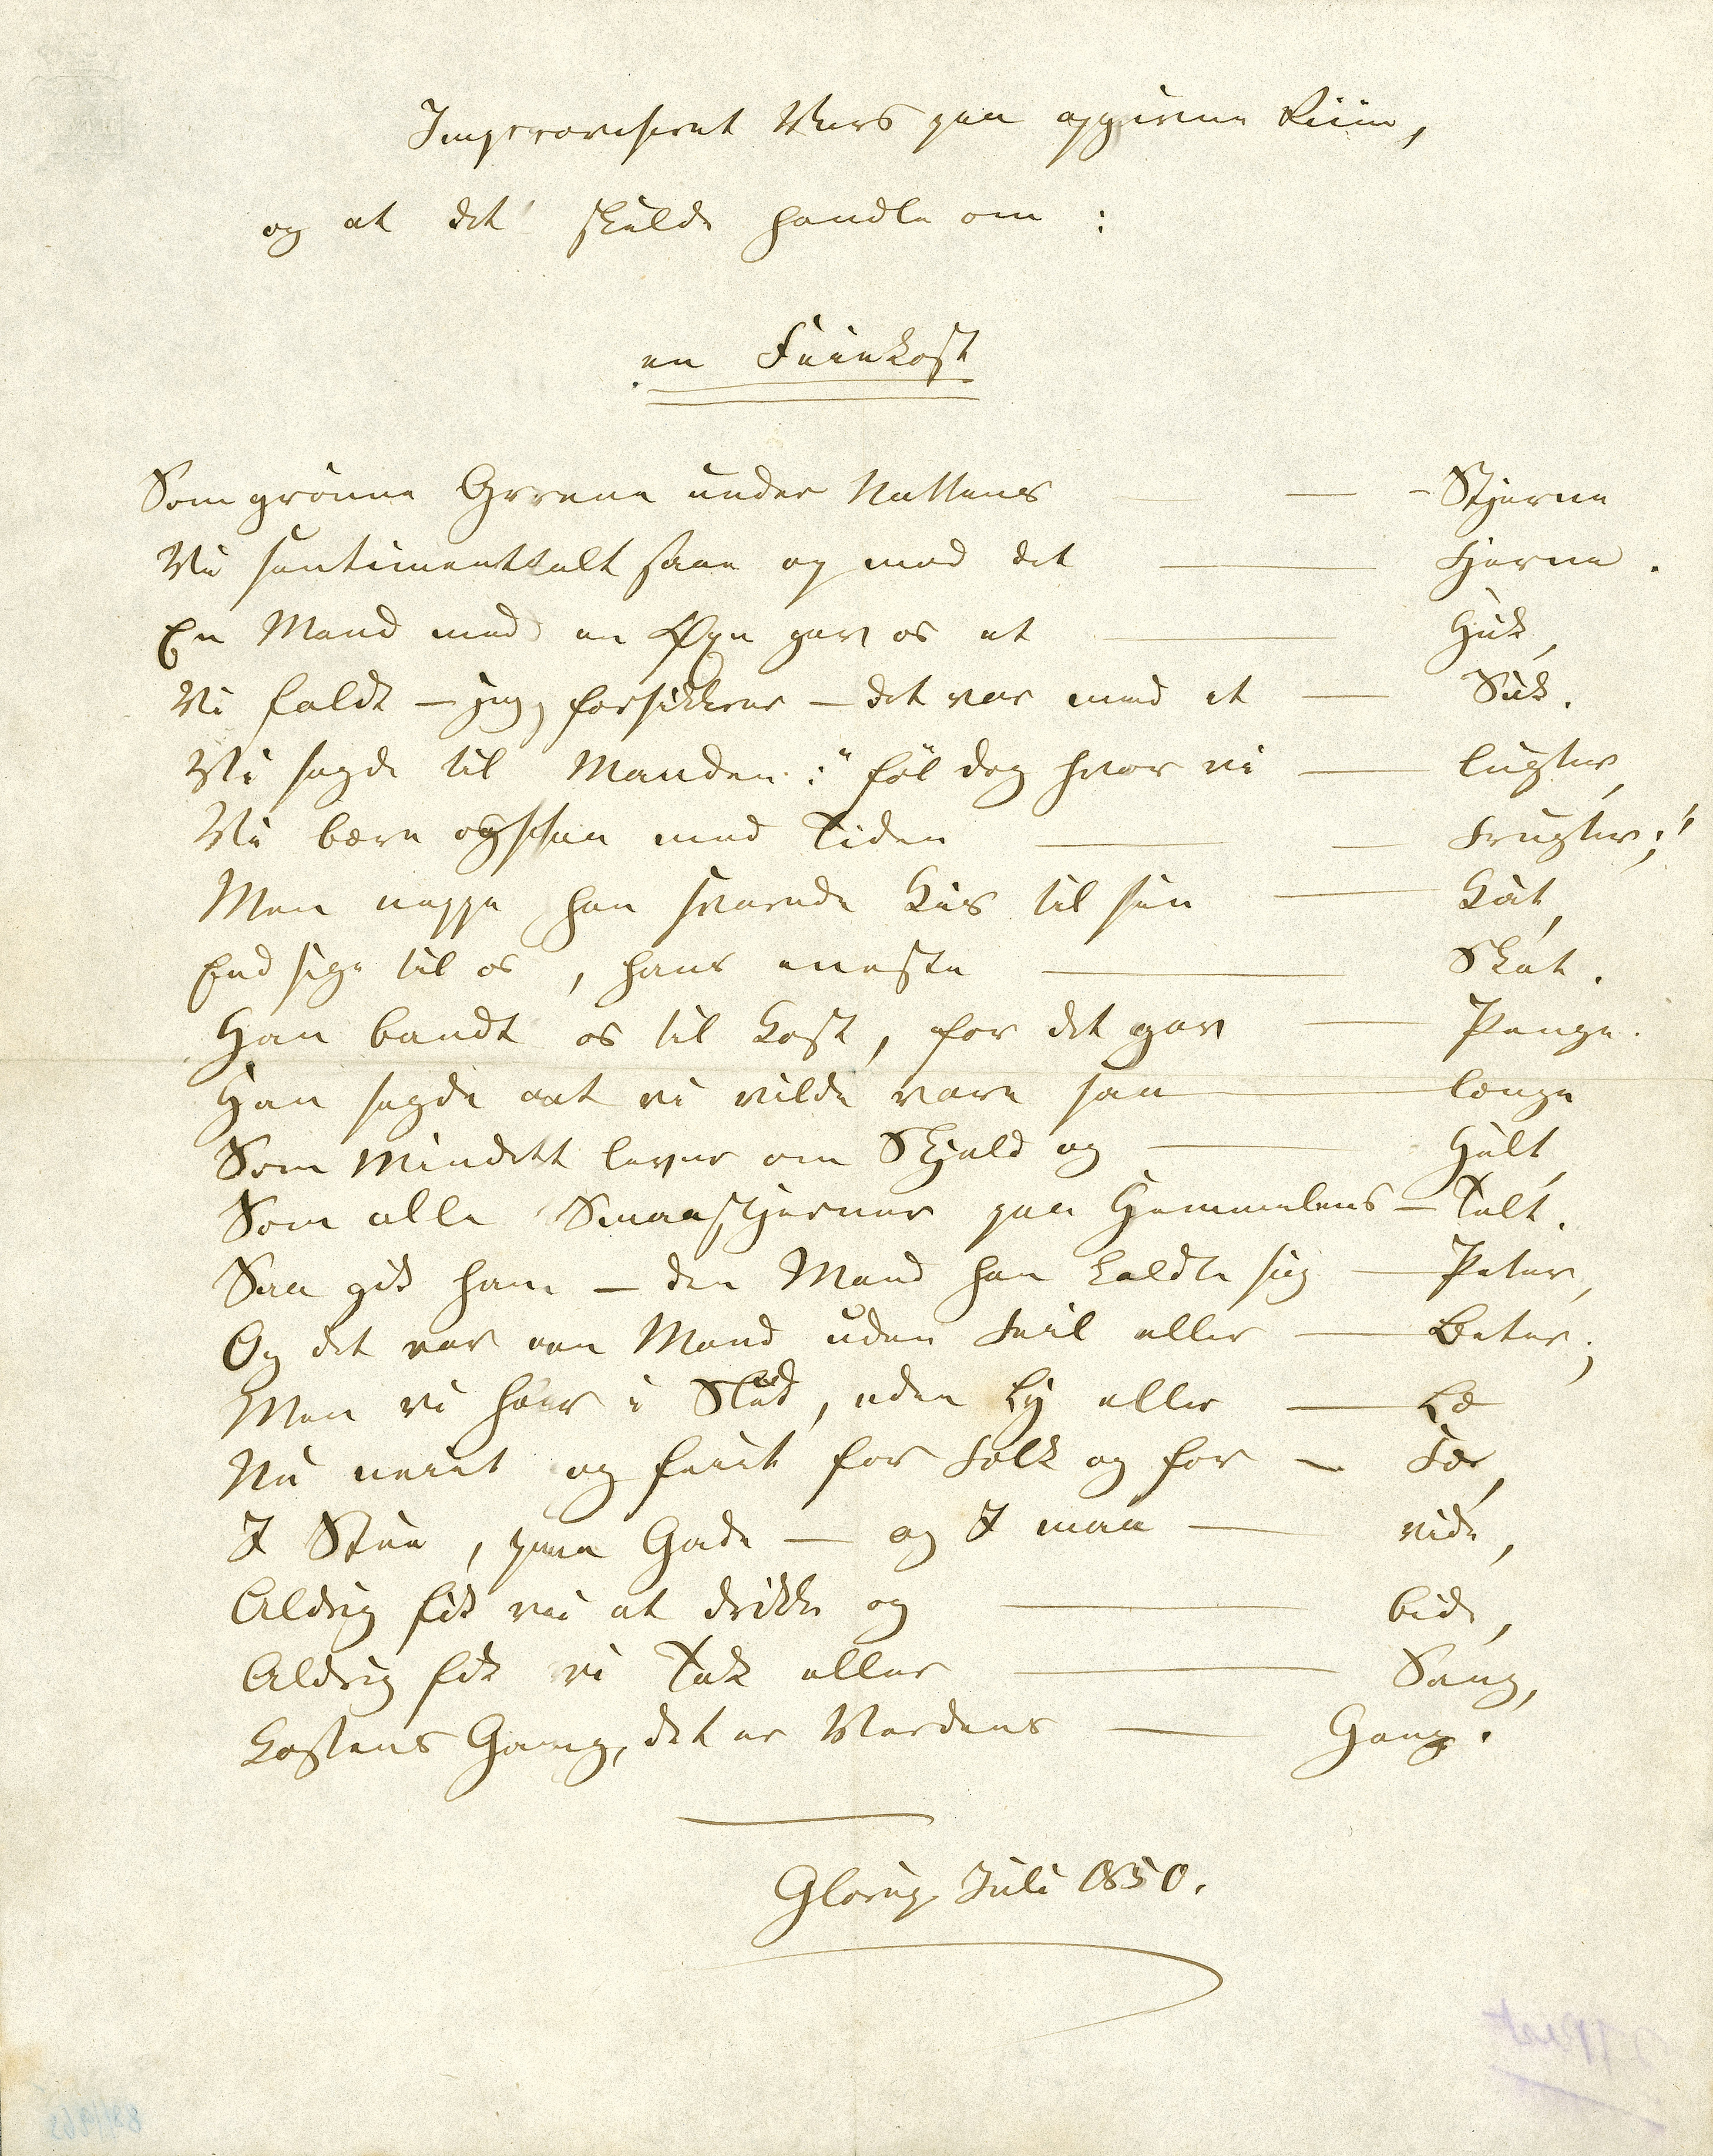 Improviseret Vers paa opgivne Riim,
og at det skulde handle om :
en Feiekost
Som grønne Grene under Nattens — - Stjerne
Vi sentimenttalt saae op mod det — Fjerne.
En Mand med en Øxe gav os et — Huk,
Vi faldt — jeg forsikkrer — det var med et — Suk.
Vi sagde til Manden: "føl dog hvor vi — lugter,
Vi bære ogsaa med Tiden — — Frugter;"
Men neppe han svarede Kis til sin — Kat,
End sige til os, hans eneste — Skat.
Han bandt os til Kost, for det gav — Penge.
Han sagde at vi vilde vare saa — længe
Som Mindet lever om Skjald og — Helt,
Som alle Smaastjerner paa Himmelens — Telt.
Saa gik han — den Mand han kaldte sig — Peter,
Og det var en Mand uden Feil eller — Beter;
Men vi høer i Slud, uden Ly eller — Læ
Nu neiet og feiet for Folk og for — Fæ,
I Stue, paa Gade — og I maa — vide,
Aldrig fik vi at drikke og — bide,
Aldrig fik vi Tak eller — Sang,
Kostens Gang, det er Verdens — Gang.
Glorup Juli 1850.